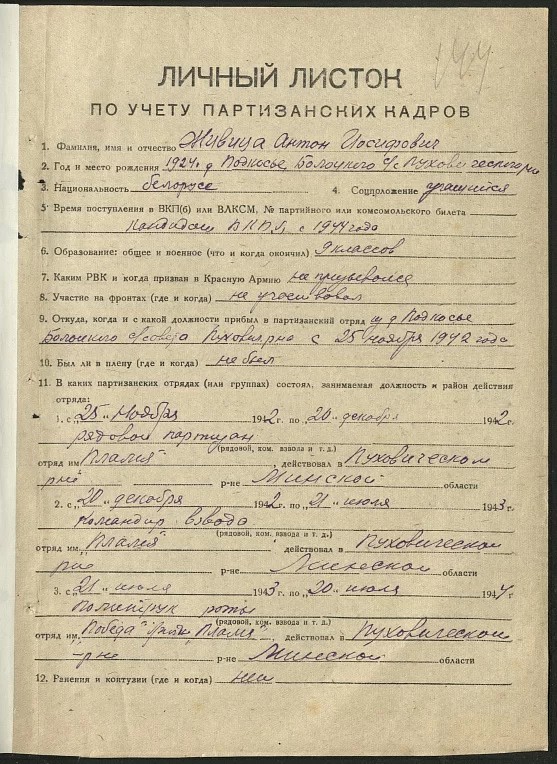 144
ЛИЧНЫЙ ЛИСТОК
ПО УЧЕТУ ПАРТИЗАНСКИХ КАДРОВ
1. Фамилия, имя и отчество Живица Антон Иосифович
2. Год и место рождения 1924 г. д Подкосье Болоцкого с/с Пуховического р-на
3. Национальность белорусс 4. Соцположение учащийся
5. Время поступления в ВКП(б) или ВЛКСМ, № партийного или комсомольского билета
кандидат с 1944 года
6. Образование: общее и военное (что и когда окончил) 9 классов
7. Каким РВК и когда призван в Красную Армию не призывался
8. Участие на фронтах (где и когда) не участвовал
9. Откуда, когда и с какой должности прибыл в партизанский отряд из д Подкосье
Болоцкого с/совета с 25 ноября 1942 года
10. Был ли в плену (где и когда) не был
11. В каких партизанских отрядах (или группах) состоял, занимаемая должность и район действия
отряда:
1. с „25" ноября 1942 г. по „20" декабря 1942 г.
рядовой партизан
(рядовой, ком. взвода и т. д.)
отряд им. „Пламя" действовал в Пуховическом
р-не р-не Минской области
2. с „20" декабря 1942 г. по „21" июля 1943 г.
командир взвода
(рядовой, ком. взвода и т. д.)
отряд им. „Пламя" действовал в Пуховическом
р-не р-не Минской области
3. с „21" июля 1943 г. по „20" июля 1944 г.
Политрук роты
(рядовой, ком. взвода и т. д.)
отряд им. „Победа" „Пламя" действовал в Пуховическом
р-не р-не Минской области
12. Ранения и контузии (где и когда) нет